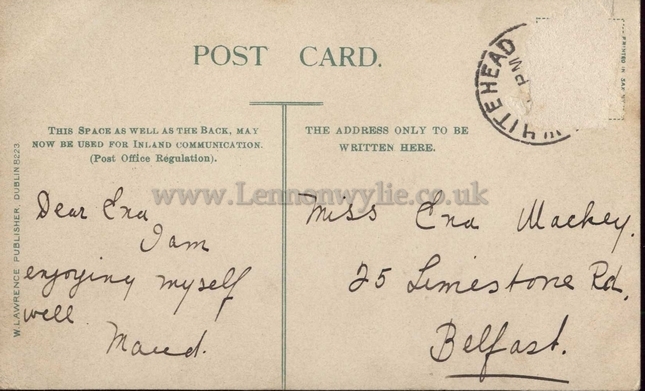 POST CARD.
WHITEHEAD
PM
THIS SPACE AS WELL AS THE BACK, MAY
NOW BE USED FOR INLAND COMMUNICATION.
(Post Office Regulation).
THE ADDRESS ONLY TO BE
WRITTEN HERE.
www.Lennonwylie.co.uk
Dear Ena
I am
enjoying myself
well
Maud.
Miss Ena Mackey.
25 Limestone Rd,
Belfast.
W. LAWRENCE PUBLISHER, DUBLIN 8223